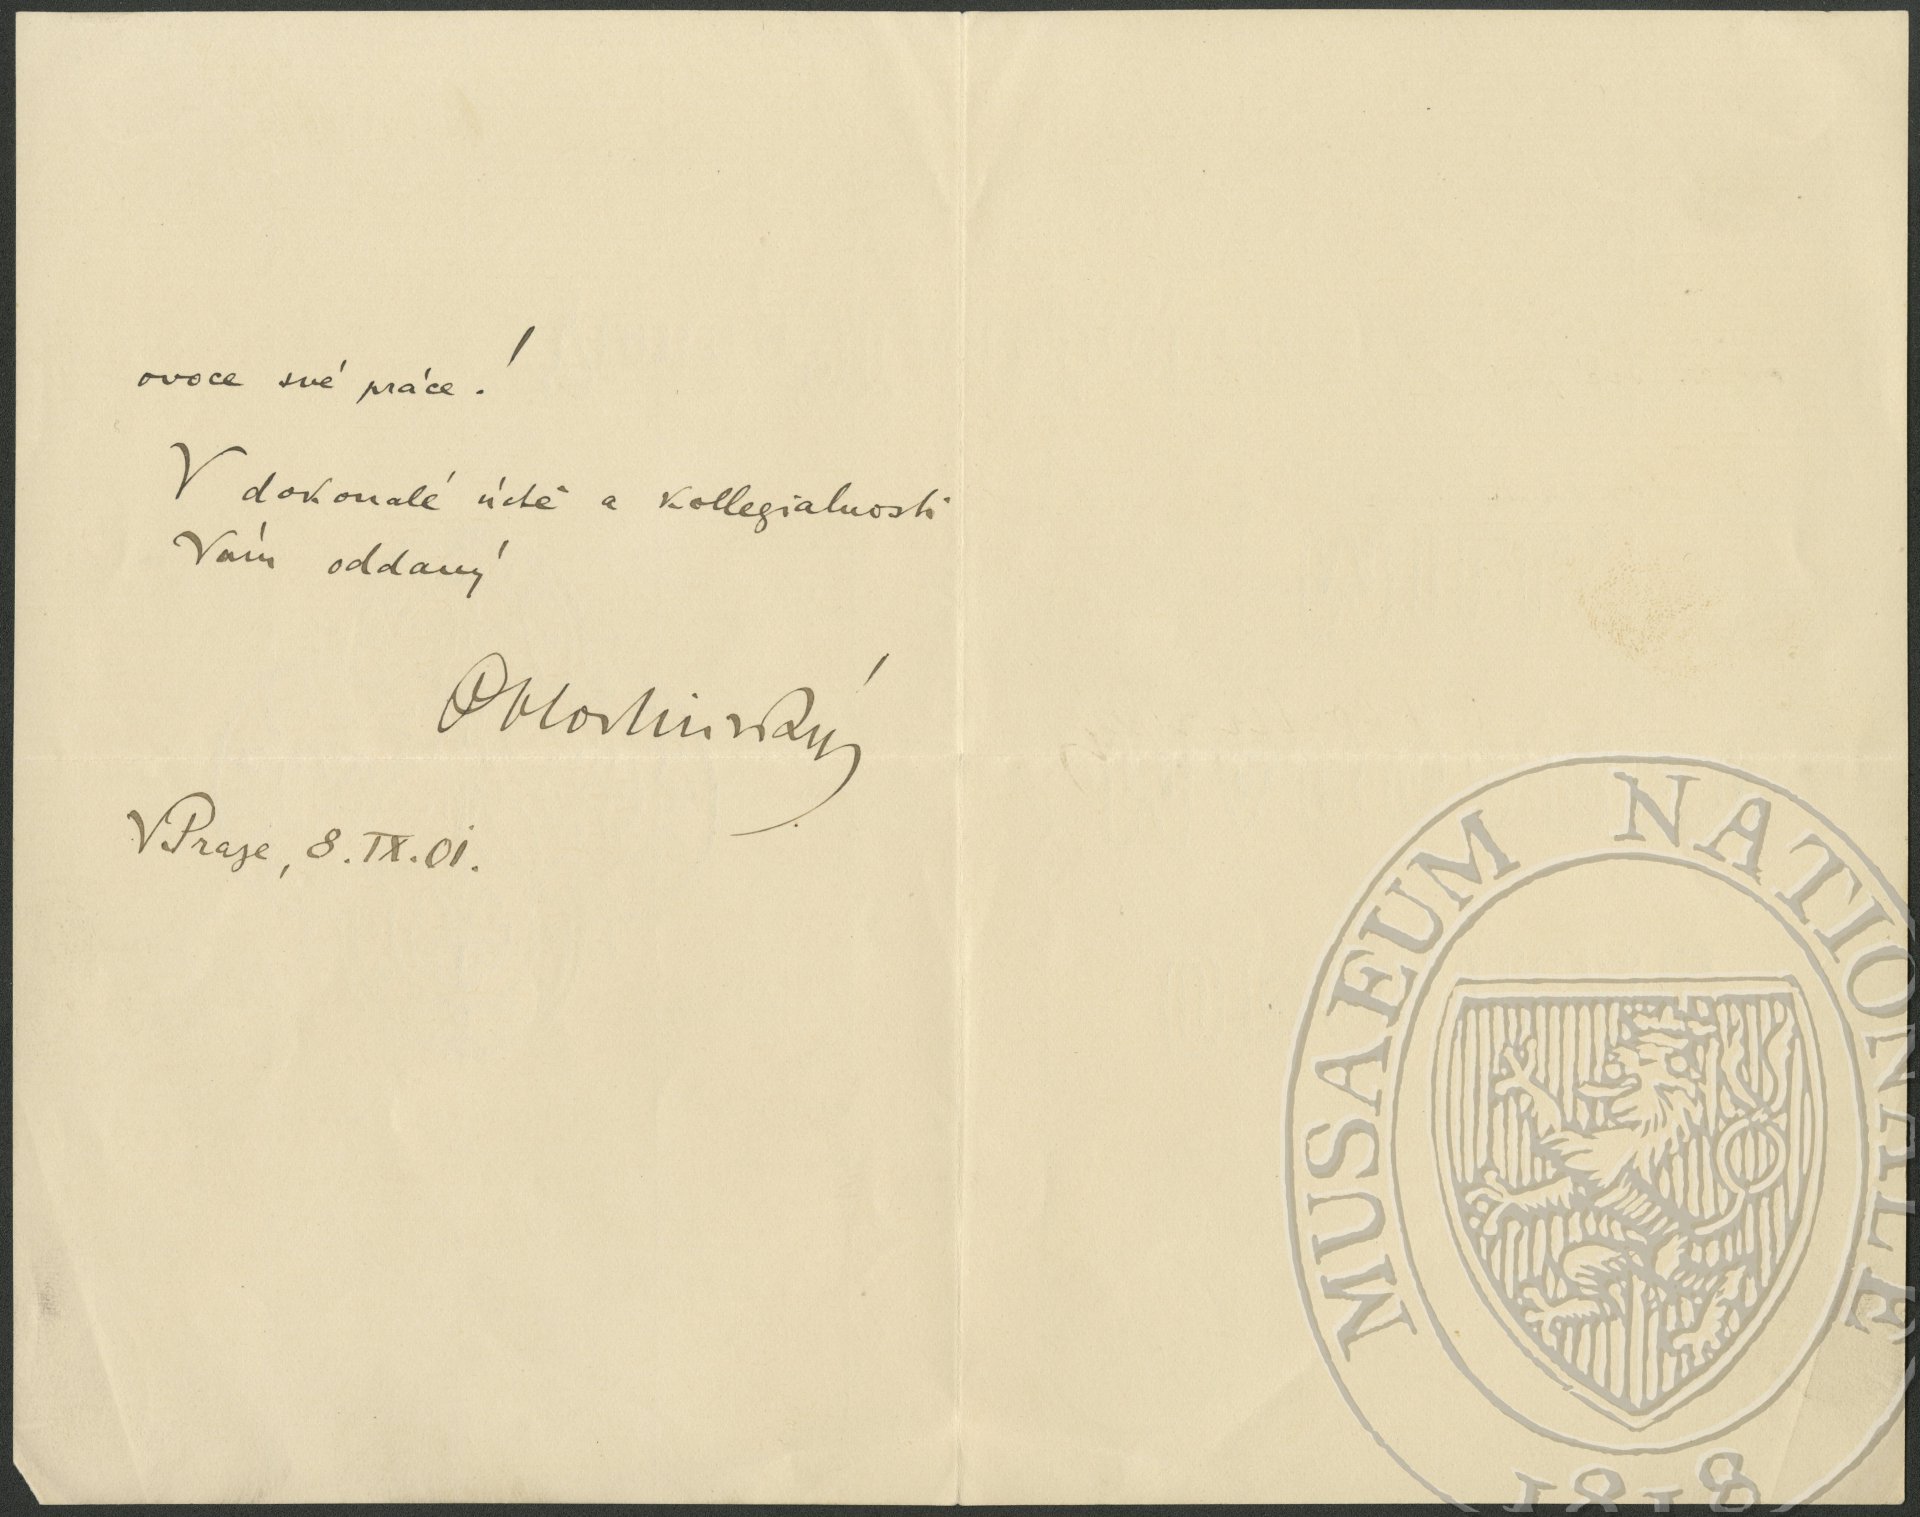 ovoce své práce!
V dokonalé úctě a kollegialnosti
Vám oddaný
OHostinský
V Praze, 8. IX. 01.
MUSAEUM NATIONALE
1818